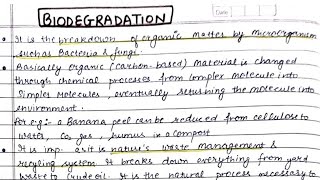 BIODEGRADATION
Date
It is the breakdown of organic matter by microorganism
such as Bacteria & fungi.
Basically organic (carbon-based) material is changed
through chemical processes from complex molecule into
Simpler molecules, eventually returning the molecule into
environment.
for e.g:- a Banana peel can be reduced from cellulose to
water, CO2 gas, humus in a compost
It is imp. as it is nature's waste management &
recycling system. It breaks down everything from yard
waste to crude oil. It is the natural process necessary to